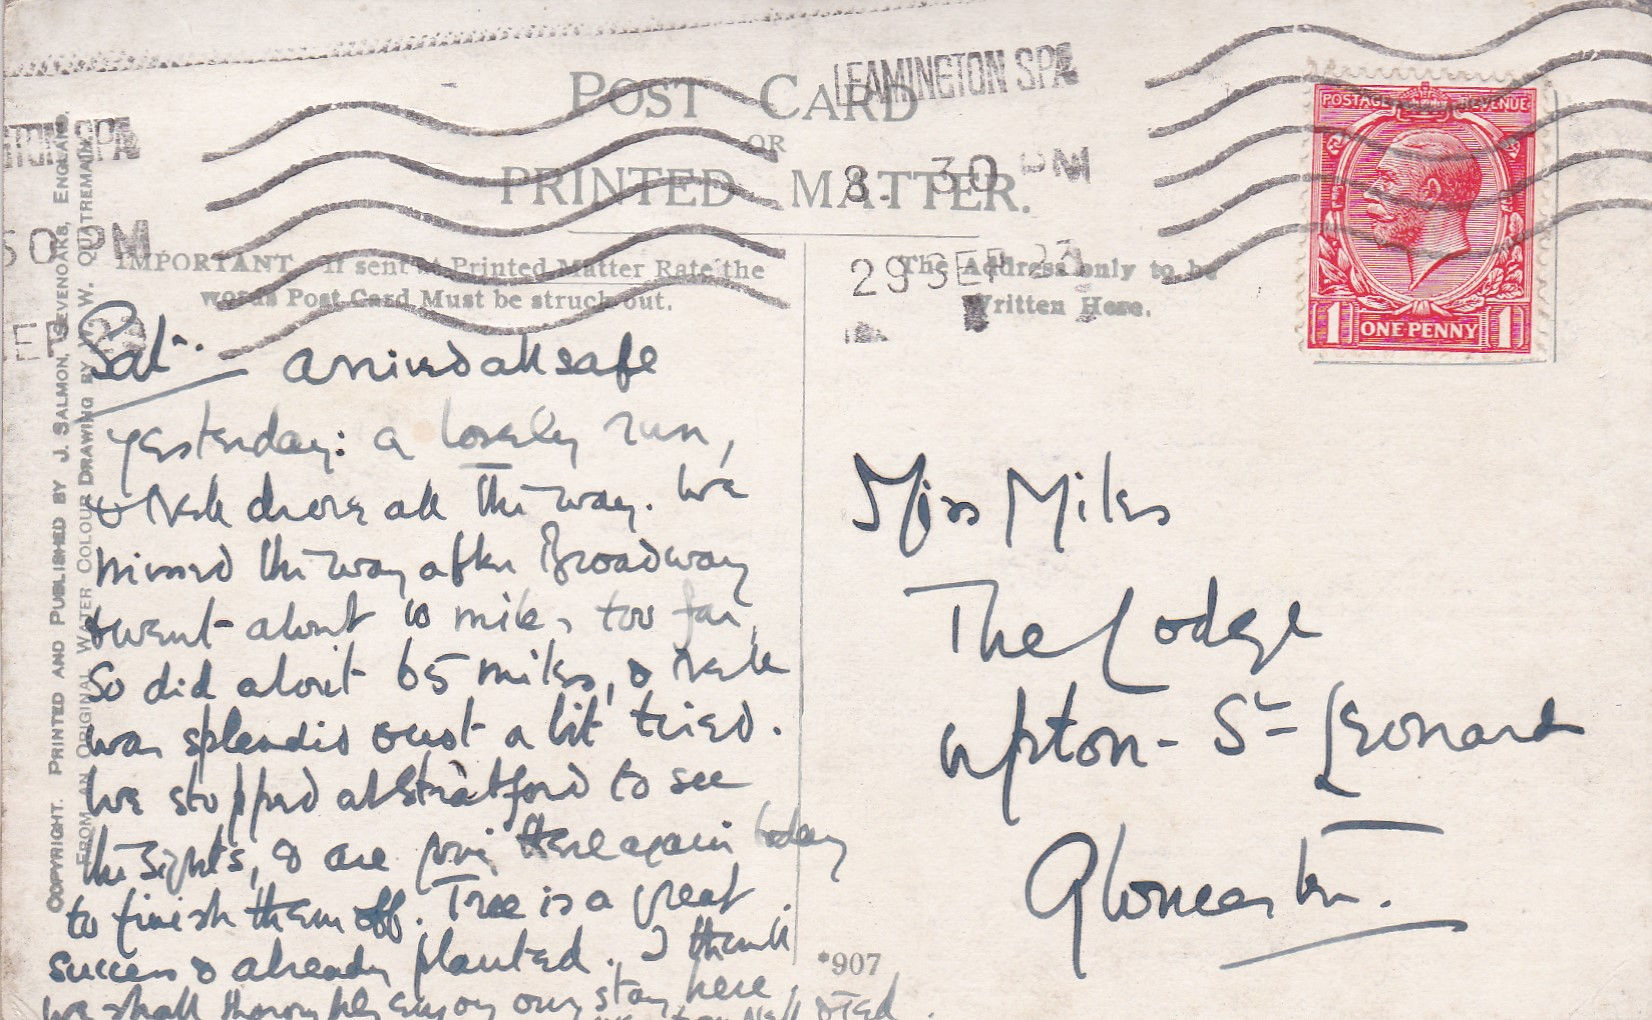 POST CARD
OR
PRINTED MATTER.
LEAMINGTON SPA
8. 30 PM
29 SEP 23
TON SPA
30 PM
POSTAGE REVENUE
1 ONE PENNY 1
IMPORTANT If sent at Printed Matter Rate the
words Post Card Must be struck out.
The Address only to be
Written Here.
COPYRIGHT. PRINTED AND PUBLISHED BY J. SALMON, SEVENOAKS, ENGLAND.
FROM AN ORIGINAL WATER COLOUR DRAWING BY W. W. QUATREMAIN.
Satn. arrived all safe
yesterday: a lovely run,
& Nell drove all the way. We
missed the way after Broadway
& went about 10 miles too far,
so did about 65 miles, & Nell
was splendid & not a bit tired.
We stopped at Stratford to see
the sights, & are going there again today
to finish them off. Tree is a great
success & already planted. I think
we shall thoroughly enjoy our stay here
Miss Miles
The Lodge
Upton-St Leonard
Gloucester.
*907